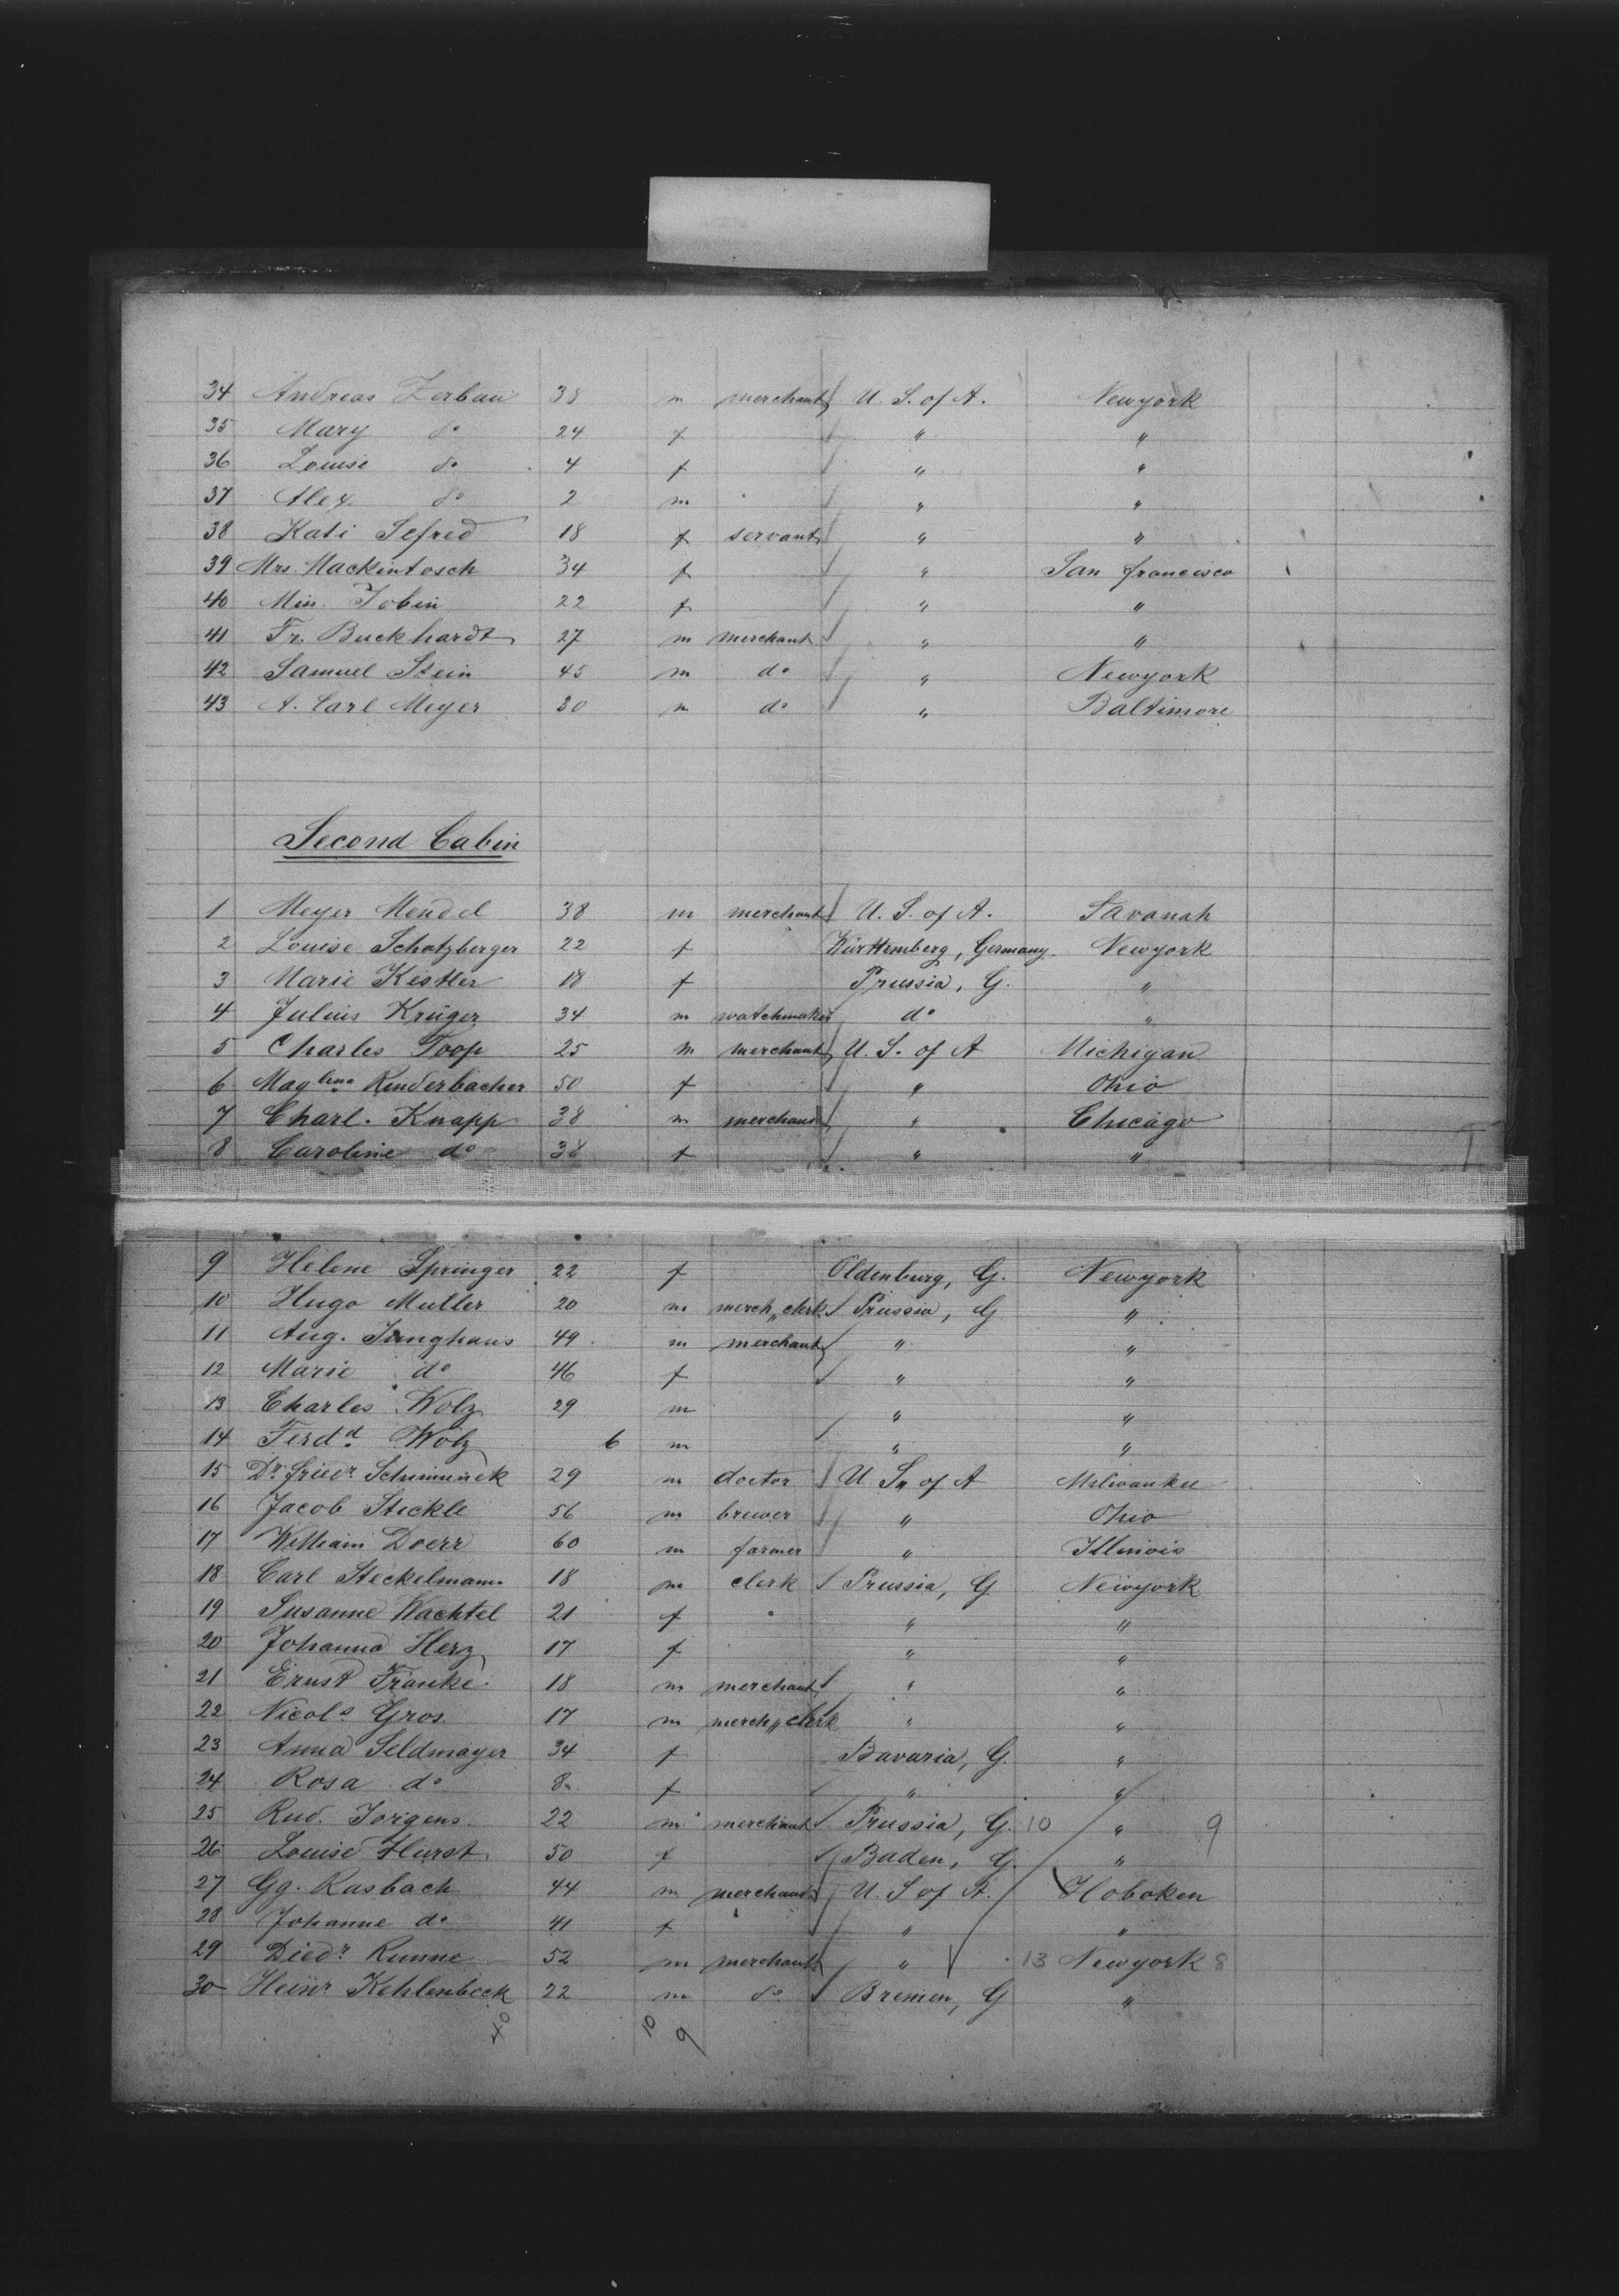 34 Andreas Zerban 38 m merchant U. S. of A. Newyork
35 Mary do 24 f " "
36 Louise do 4 f " "
37 Alex do 2 m " "
38 Kati Sefred 18 f servant " "
39 Mrs. Mackintosch 34 f " San francisco
40 Min. Tobin 22 f " "
41 Fr. Buckhardt 27 m merchant " "
42 Samuel Stein 45 m do " Newyork
43 A. Carl Meyer 30 m do " Baltimore
Second Cabin
1 Meyer Mendel 38 m merchant U. S. of A. Savanah
2 Louise Schatzberger 22 f Württemberg, Germany. Newyork
3 Marie Kistler 18 f Prussia, G. "
4 Julius Krüger 34 m watchmaker do "
5 Charles Toop 25 m merchant U. S. of A Michigan
6 Maglena Rinderbacher 50 f " Ohio
7 Charl. Knapp 38 m merchand " Chicago
8 Caroline do 38 f " "
9 Helene Springer 22 f Oldenburg, G. Newyork
10 Hugo Muller 20 m merch„clerk Prussia, G "
11 Aug. Junghans 49 m merchant " "
12 Marie do 46 f " "
13 Charles Wolz 29 m " "
14 Ferdd Wolz 6 m " "
15 Dr friedr 29 m doctor U. S„ of A Milwaukee
16 Jacob Stickle 56 m brewer " Ohio
17 William Doerr 60 m farmer " Illinois
18 Carl Steckelmann 18 m clerk Prussia, G Newyork
19 Susanne Wachtel 21 f " "
20 Johanna Herz 17 f " "
21 Ernst Franke 18 m merchant " "
22 Nicols Gros. 17 m merch„clerk " "
23 Anna Seldmayer 34 f Bavaria, G. "
24 Rosa do 8 f " "
25 Rud. Jorgens 22 m merchant Prussia, G. 10 " 9
26 Louise Hurst 50 f Baden, G. "
27 Gg. Rasbach 44 m merchant U. S of A. Hoboken
28 Johanne do 41 f " "
29 Diedr Runne 52 m merchant " 13 Newyork 8
30 Heinr Kehlenbeck 22 m do Bremen, G "
40 10 9